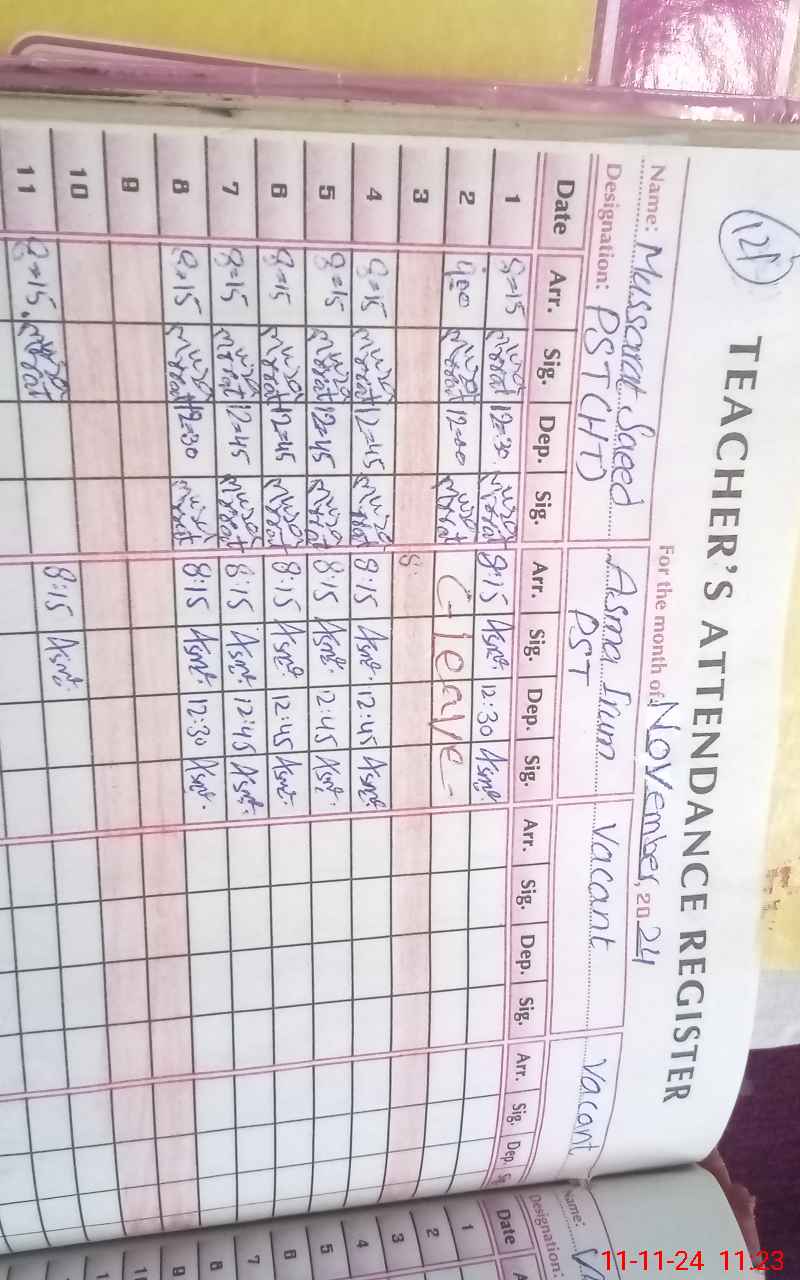 121
TEACHER'S ATTENDANCE REGISTER
Name: Mussarat Saeed For the month of November, 2024
Designation: PST (HT) Asma Irum PST Vacant Vacant
Date Arr. Sig. Dep. Sig. Arr. Sig. Dep. Sig. Arr. Sig. Dep. Sig. Arr. Sig. Dep.
1 8=15 12=30 8:15 Asma 12:30 Asma
2 9=00 12=00 C-leave-
3 8:
4 8=15 12=45 8:15 Asma 12:45 Asma
5 8=15 12=45 8:15 Asma 12:45 Asma
6 8=15 12=45 8:15 Asma 12:45 Asma
7 8=15 12=45 8:15 Asma 12:45 Asma
8 8=15 12=30 8:15 Asma 12:30 Asma
9
10
11 8=15 8:15 Asma
Name:
Designation:
Date
1
2
3
4
5
6
7
8
9
11-11-24 11:23